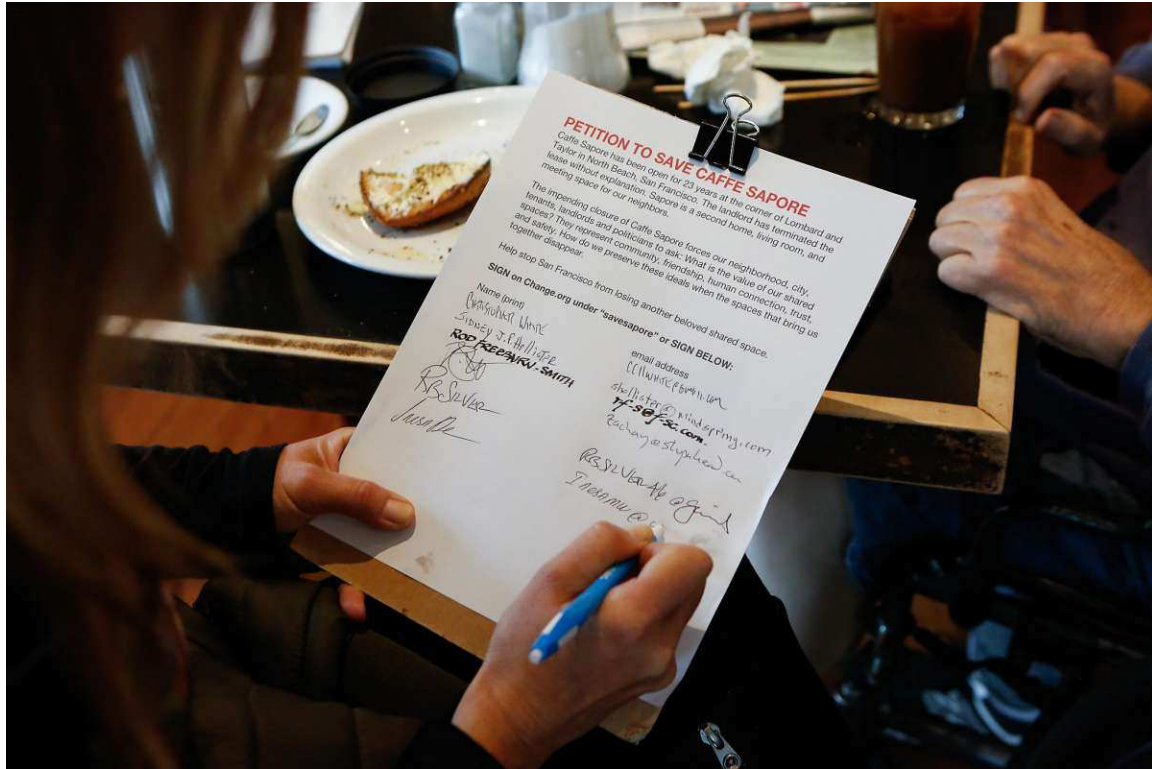 PETITION TO SAVE CAFFE SAPORE
Caffe Sapore has been open for 23 years at the corner of Lombard and
Taylor in North Beach, San Francisco. The landlord has terminated the
lease without explanation. Sapore is a second home, living room, and
meeting space for our neighbors.
The impending closure of Caffe Sapore forces our neighborhood, city,
tenants, landlords and politicians to ask: What is the value of our shared
spaces? They represent community, friendship, human connection, trust,
and safety. How do we preserve these ideals when the spaces that bring us
together disappear.
Help stop San Francisco from losing another beloved shared space.
SIGN on Change.org under "savesapore" or SIGN BELOW:
Name (print)
email address
CHRISTOPHER WHITE
SIDNEY J.P. HOLLISTER
shollister@mindspring.com
ROD FREEBAIRN-SMITH
rf-s@f-sc.com
RB SILVER